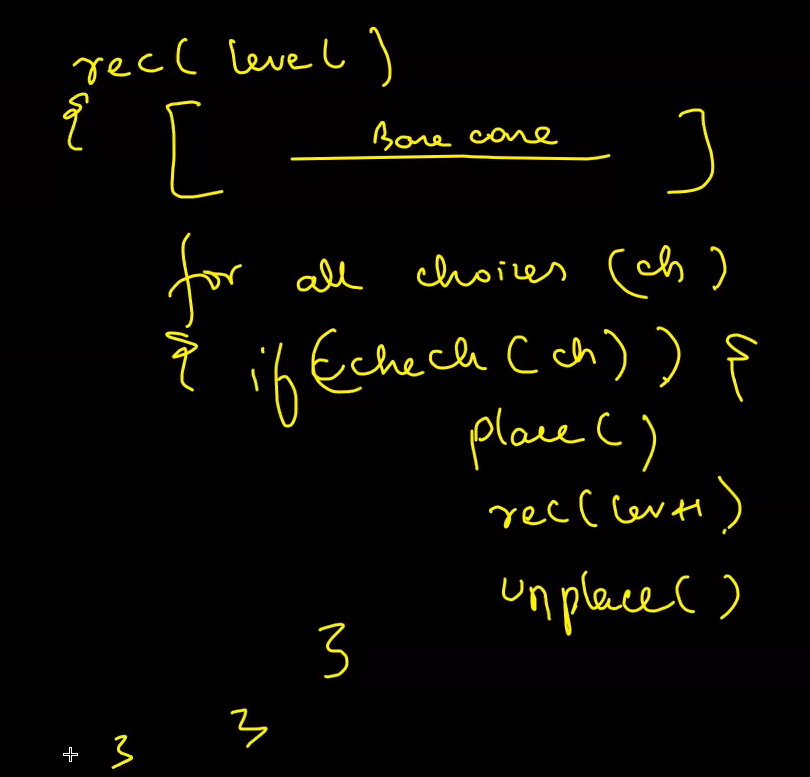 rec( level )
{ [ Base case ]
for all choices (ch)
{ if(check(ch)) {
place()
rec(lev+1)
unplace()
}
}
}